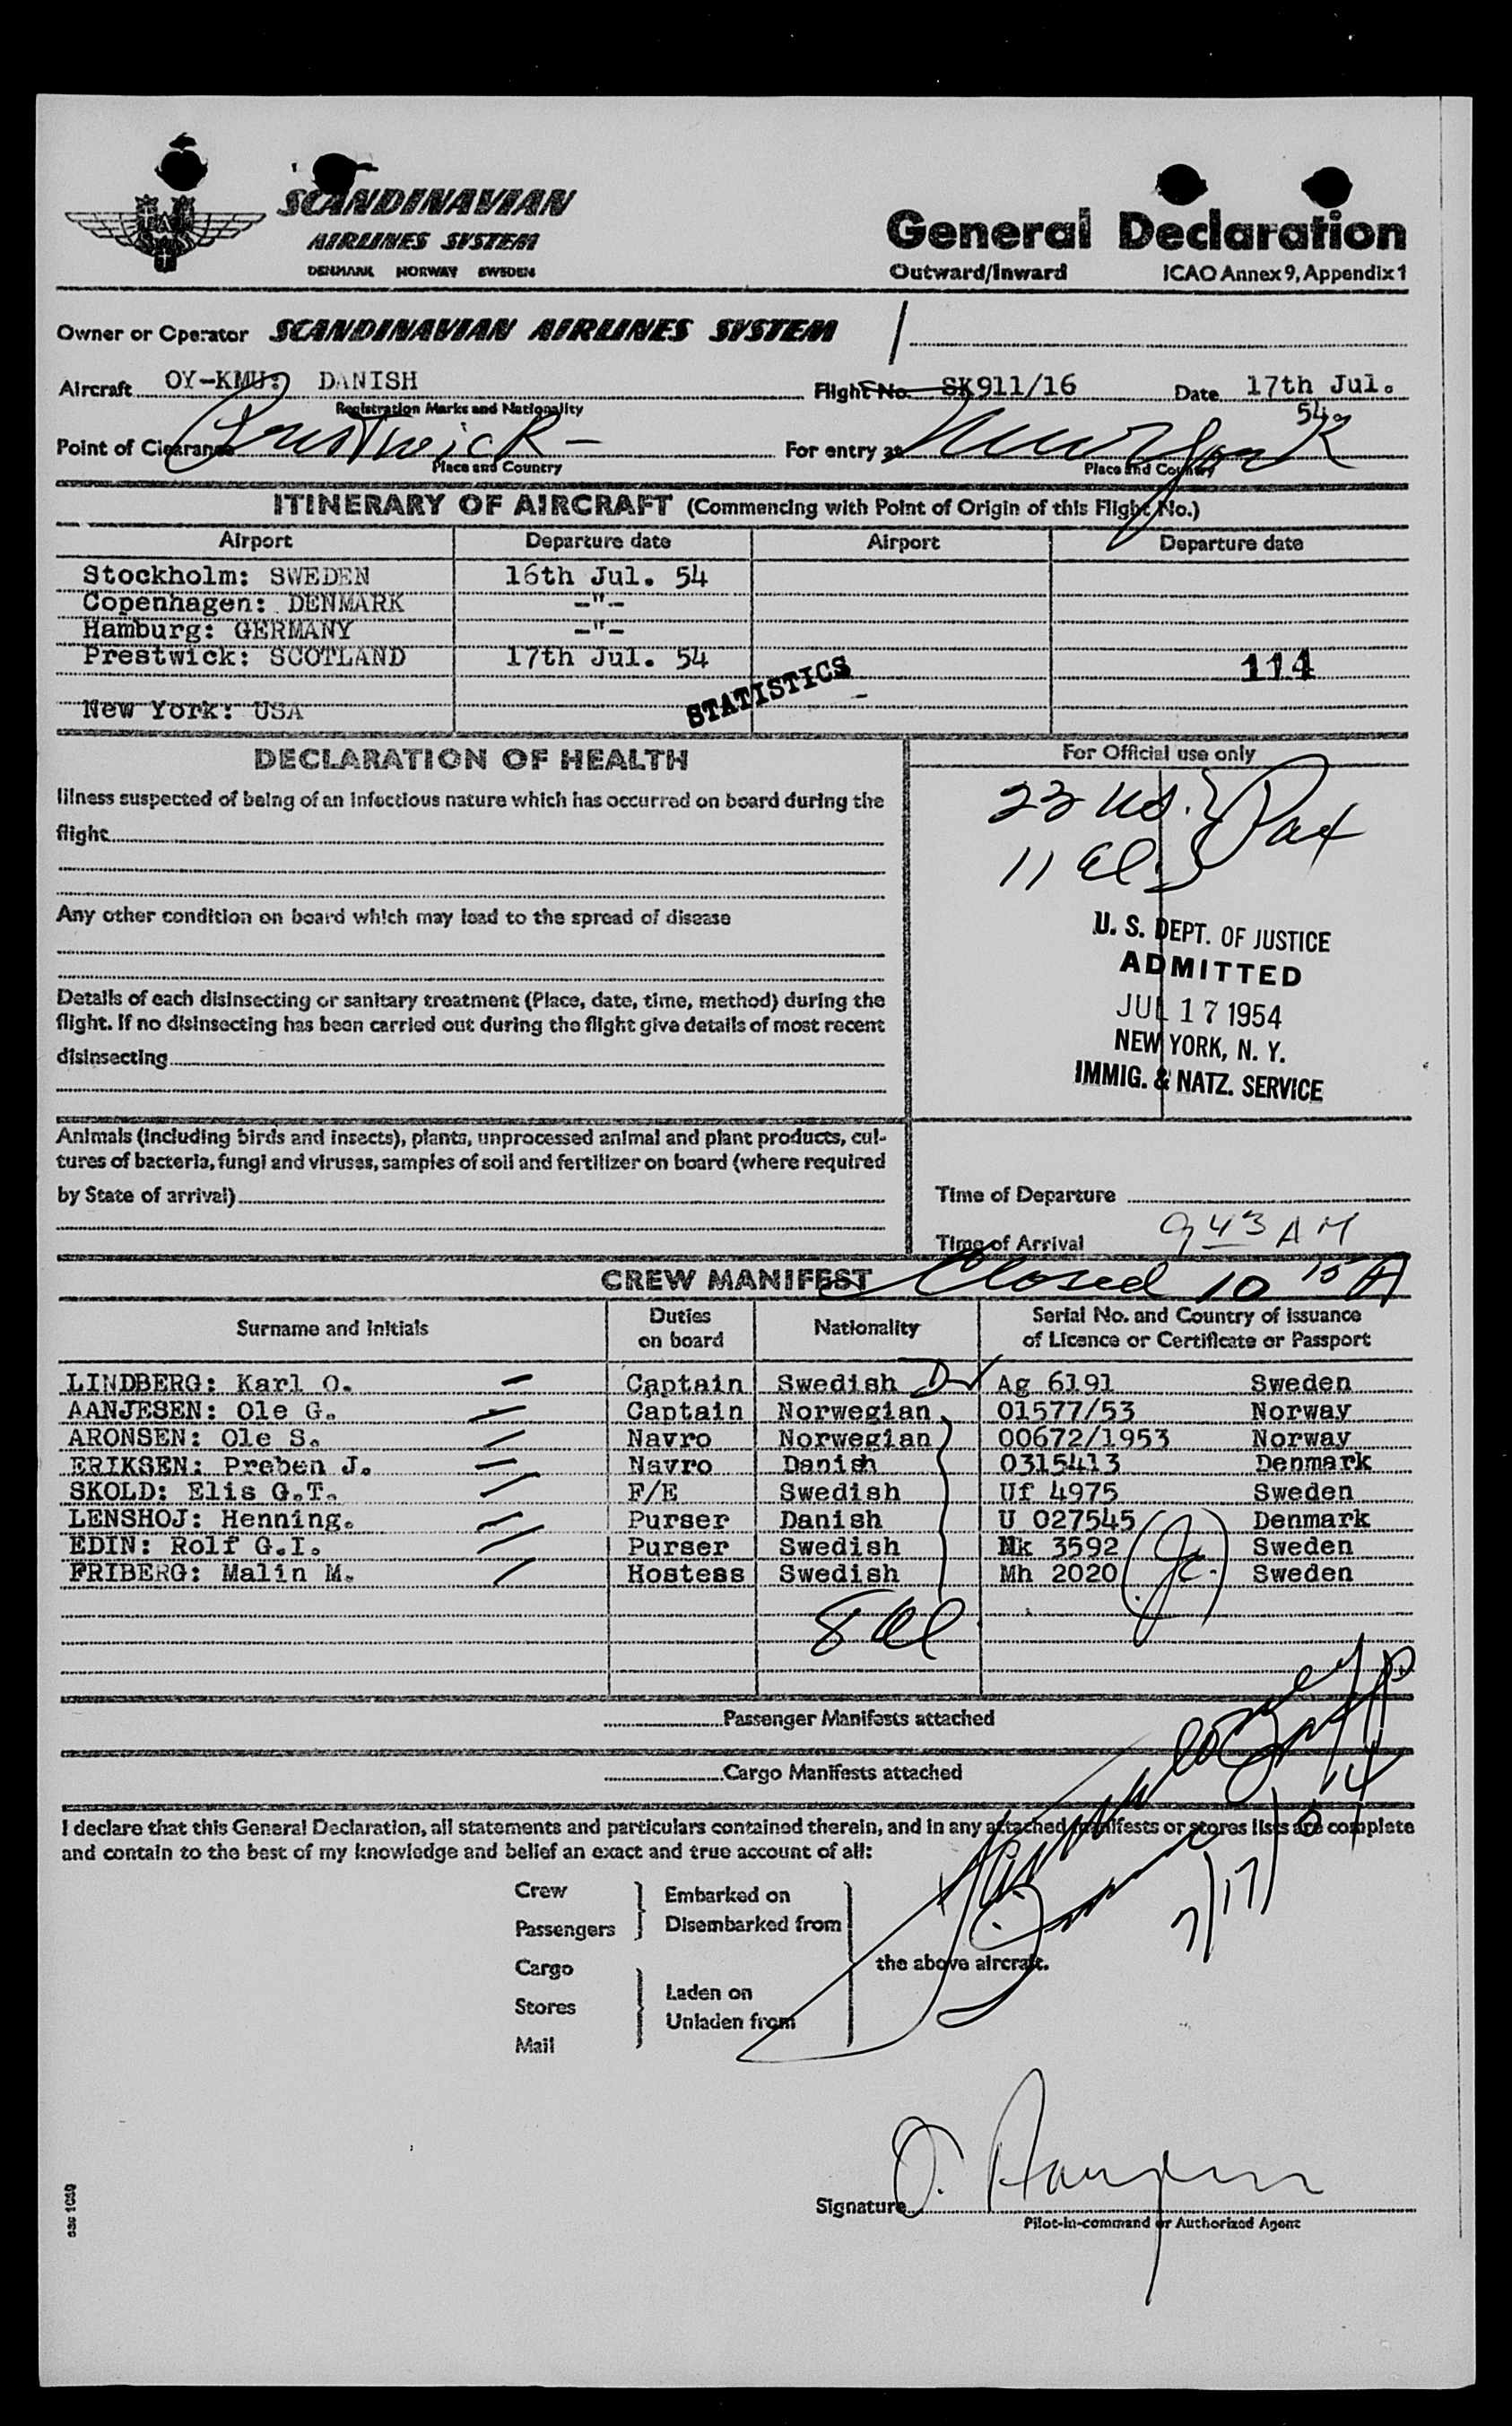 SCANDINAVIAN
AIRLINES SYSTEM
DENMARK NORWAY SWEDEN
General Declaration
Outward/Inward ICAO Annex 9, Appendix 1
Owner or Operator SCANDINAVIAN AIRLINES SYSTEM
Aircraft OY-KMU: DANISH Flight No. SK911/16 Date 17th Jul. 54.
Registration Marks and Nationality
Point of Clearance Prestwick - For entry at New York
Place and Country Place and Country
ITINERARY OF AIRCRAFT (Commencing with Point of Origin of this Flight No.)
Airport Departure date Airport Departure date
Stockholm: SWEDEN 16th Jul. 54
Copenhagen: DENMARK -"-
Hamburg: GERMANY -"-
Prestwick: SCOTLAND 17th Jul. 54
STATISTICS
114
New York: USA
DECLARATION OF HEALTH
For Official use only
Illness suspected of being of an infectious nature which has occurred on board during the
flight
23 US. Pax
11 al.
Any other condition on board which may lead to the spread of disease
U. S. DEPT. OF JUSTICE
ADMITTED
JUL 17 1954
NEW YORK, N. Y.
IMMIG. & NATZ. SERVICE
Details of each disinsecting or sanitary treatment (Place, date, time, method) during the
flight. If no disinsecting has been carried out during the flight give details of most recent
disinsecting
Animals (including birds and insects), plants, unprocessed animal and plant products, cul-
tures of bacteria, fungi and viruses, samples of soil and fertilizer on board (where required
by State of arrival)
Time of Departure
Time of Arrival 9 43 AM
CREW MANIFEST Closed 10 15 A
Surname and Initials Duties on board Nationality Serial No. and Country of issuance of Licence or Certificate or Passport
LINDBERG: Karl O. Captain Swedish Ag 6191 Sweden
AANJESEN: Ole G. Captain Norwegian 01577/53 Norway
ARONSEN: Ole S. Navro Norwegian 00672/1953 Norway
ERIKSEN: Preben J. Navro Danish 0315413 Denmark
SKOLD: Elis G.T. F/E Swedish Uf 4975 Sweden
LENSHOJ: Henning. Purser Danish U 027545 Denmark
EDIN: Rolf G.I. Purser Swedish Nk 3592 Sweden
FRIBERG: Malin M. Hostess Swedish Mh 2020 Sweden
8 al
Passenger Manifests attached
Cargo Manifests attached
I declare that this General Declaration, all statements and particulars contained therein, and in any attached manifests or stores lists are complete
and contain to the best of my knowledge and belief an exact and true account of all:
Crew
Passengers
Embarked on
Disembarked from
Cargo
Stores
Mail
Laden on
Unladen from
the above aircraft.
7/17/
Signature
Pilot-in-command or Authorized Agent